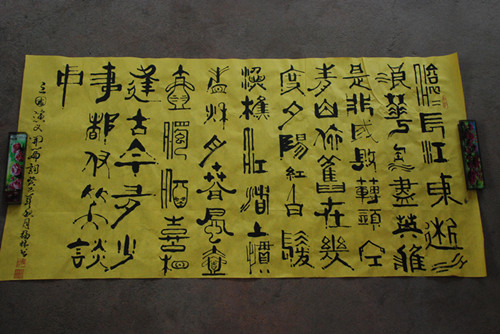 滾長江東逝水
浪華淘盡英雄
是非成敗轉頭空
青山依舊在幾
度夕陽紅白髮
漁樵江渚上慣
看秋月春風壹
壺濁酒喜相
逢古今多少
事都付笑談
中
三國演义开篇詞癸巳年秋月